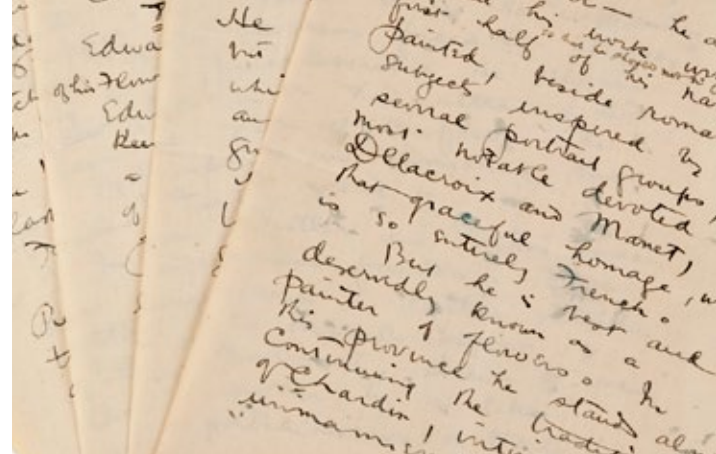 Edwa
of his Flow
Edw
Keu
of
He
but
whi
au
gr
his work
first half of his na
painted, beside roma
subjects inspired by
several portrait groups,
most notable devoted
Dellacroix and Manet,
that graceful homage, w
is so entirely French.
But he is best and
deservedly known as a
painter of flowers. In
this province he stands alo
Continuing the tradi
of Chardin, inti